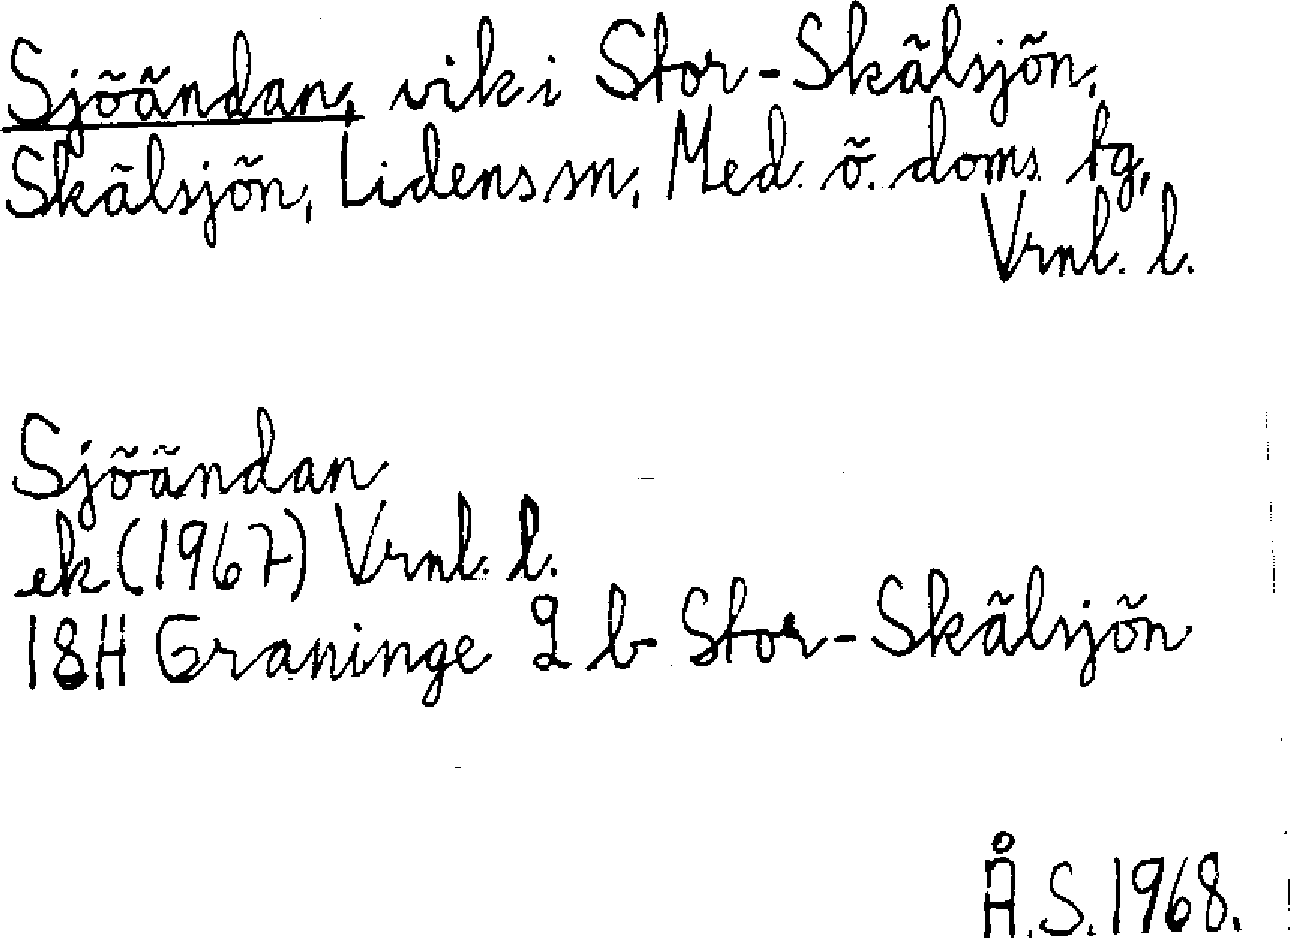 Sjöändan, vik i Stor-Skälsjön,
Skälsjön, Lidens sn, Med. ö. doms. tg,
Vrnl. l.
Sjöändan
ek (1967) Vrnl. l.
18H Graninge 2 b Stor-Skälsjön
Å.S. 1968.